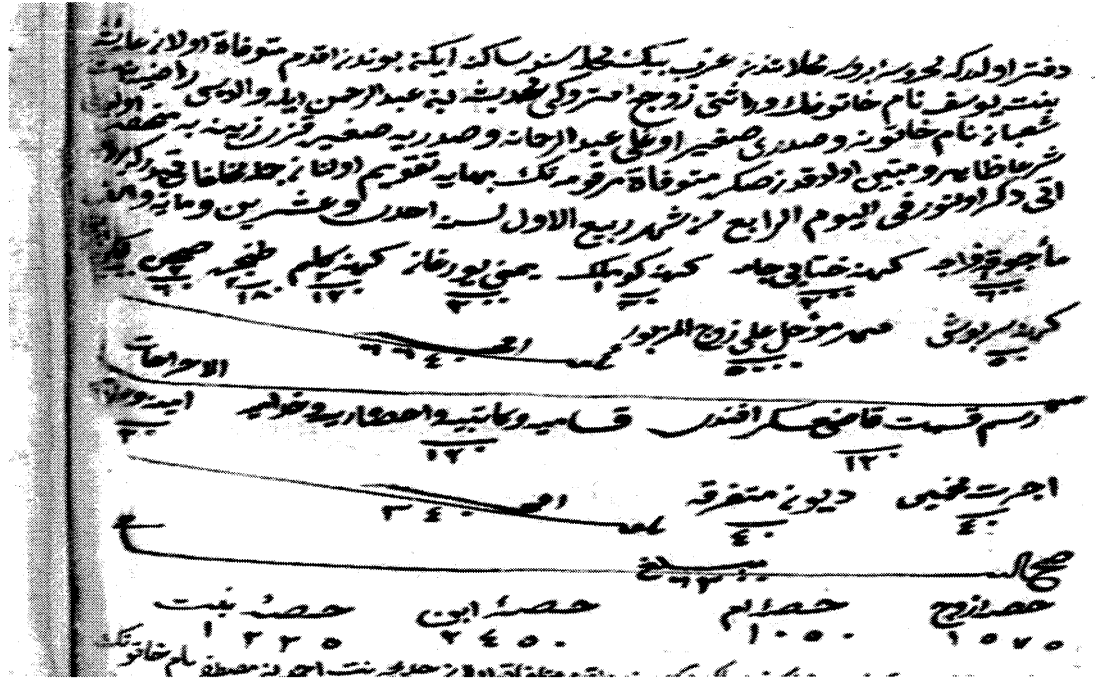 دفتر اولدركه محروسهٔ بروسه محلاتندن عرب بيك محله سنده ساكنه ايكن بوندن اقدم متوفاة اولان عايشه
بنت يوسف نام خاتونك وراثتى زوج متروكى محمد بشه بن عبد الرحمن ايله والده سى راضيه بنت
شعبان نام خاتونه و صدرى صغير اوغلى عبد الرحمان و صدريه صغيره قزى زينبه منحصره اولديغى
شرعا ظاهر و متبين اولدقدنصكره متوفاة مرقومه نك بهايه تقويم اولنان جمله مخلفاتيدركه
اتى ذكر اولنور فى اليوم الرابع من شهر ربيع الاول لسنه احدى وعشرين ومايه والف
جوقه فراجه كهنه ختايى جامه كهنه كوملك كهنه كليم طنجره صحن
٦٠٠ ٣٠٠ ٣٠ ٣٠٠ ١٢٠ ١٨٠ ٦٠
كهنه سرپوش مهر مؤجل على زوج المزبور
٥٠ ٥٠٠٠ ٦٦٤٠
الاخراجات
رسم قسمت قاضى عسكر افندى قساميه وكاتبيه واحضاريه
١٢٠ ١٢٠ ٢٠
اجرت مخمن ديون متفرقه
٤٠ ٤٠ ٣٤٠
صح الباقى
٦٣٠٠
حصهٔ زوج حصهٔ ام حصهٔ ابن حصهٔ بنت
١٥٧٥ ١٠٥٠ ٢٤٥٠ ١٢٢٥